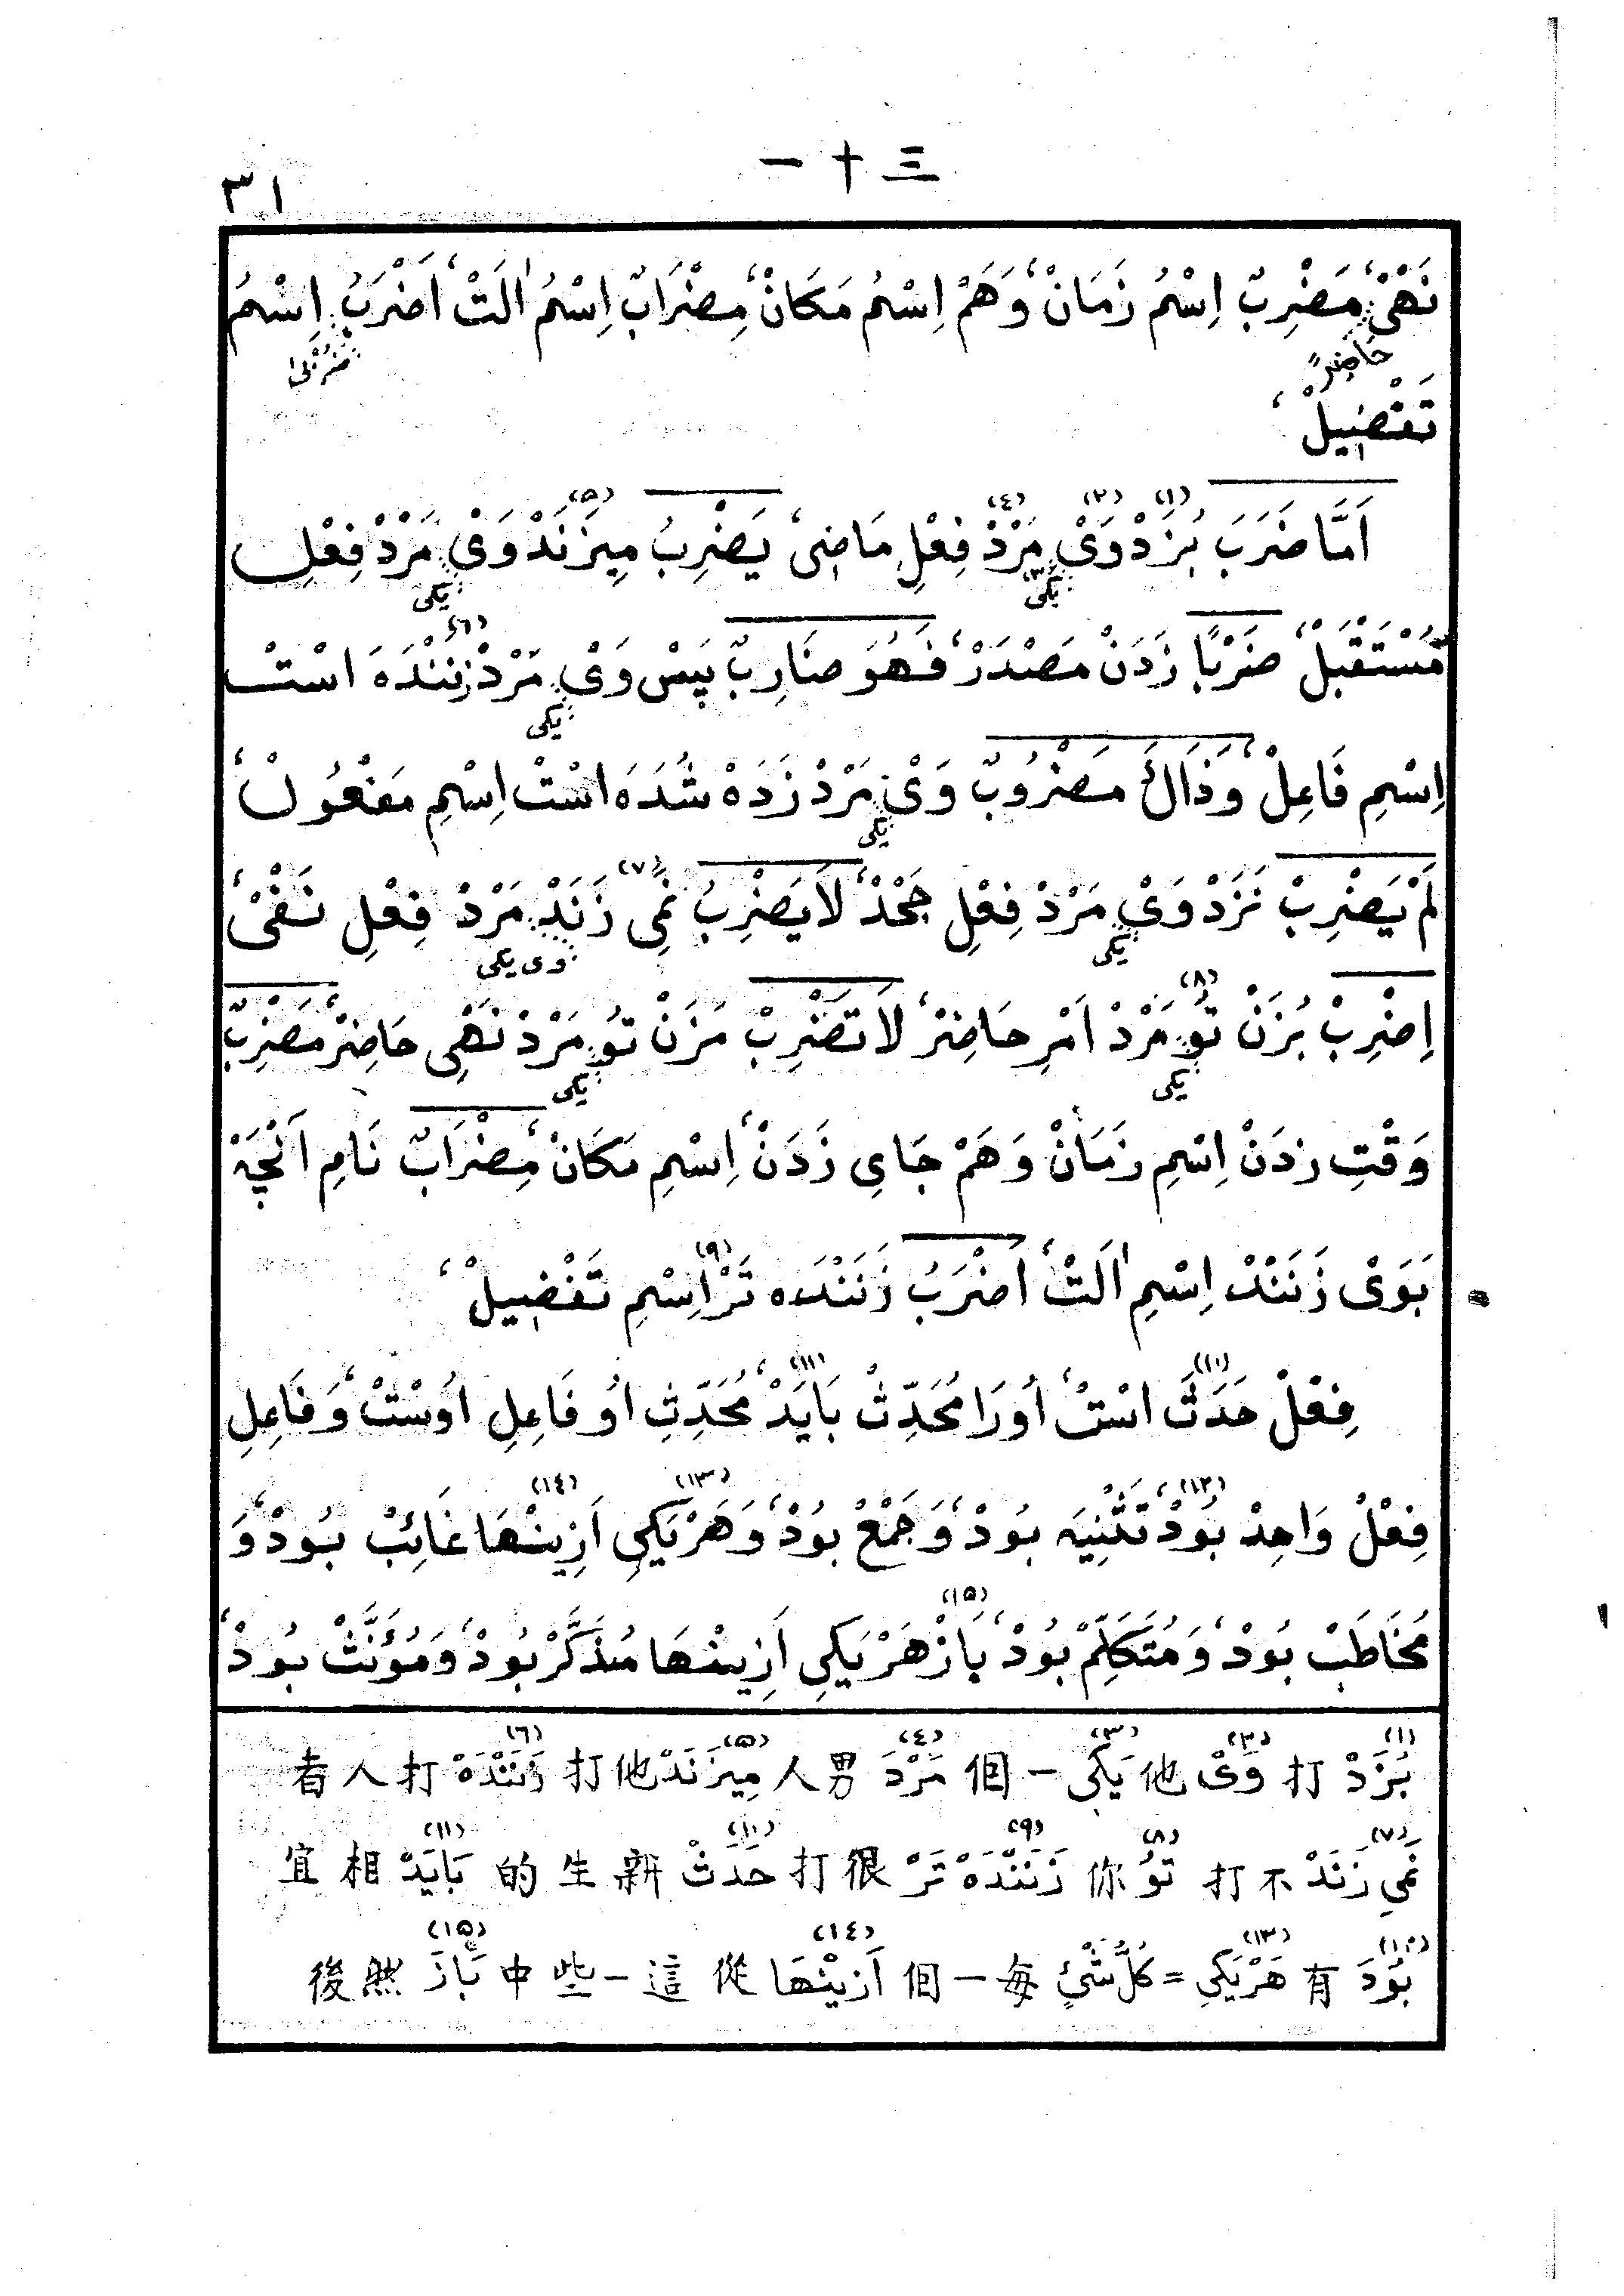 一十三
٣١
نَهْىْ، مَضْرِبٌ اِسْمُ زَمَانْ، وَهَمْ اِسْمُ مَكَانْ، مِضْرَابٌ اِسْمُ اٰلَتْ، اَضْرَبُ اِسْمُ
حَاضِرْ
تَفْضِيلْ،
اَمَّا ضَرَبَ بُزَدْ (١) وَىْ (٢) مَرْدْ (٤) فِعْلِ مَاضِىْ، يَضْرِبُ مِيزَنَدْ (٥) وَىْ مَرْدْ فِعْلِ
يَكِى (٣) يكى
مُسْتَقْبَلْ، ضَرْبًا زَدَنْ مَصْدَرْ، فَهُوَ ضَارِبٌ پَسْ وَىْ مَرْدْ زَنَنْدَهَ (٦) اسْتْ
يكى
اِسْمِ فَاعِلْ، وَذَاكَ مَضْرُوبٌ وَىْ مَرْدْ زَدَهْ شُدَهَ اسْتْ اِسْمِ مَفْعُولْ،
يكى
لَمْ يَضْرِبْ نَزَدْ وَىْ مَرْدْ فِعْلِ جَحْدْ، لَا يَضْرِبُ نَمِى زَنَدْ (٧) مَرْدْ فِعْلِ نَفْىْ،
يكى وى يكى
اِضْرِبْ بُزَنْ تُو (٨) مَرْدْ اَمْرِ حَاضِرْ، لَا تَضْرِبْ مَزَنْ تُو مَرْدْ نَهْىِ حَاضِرْ، مَضْرِبٌ
يكى يكى
وَقْتِ زدَنْ اِسْمِ زَمَانْ وَهَمْ جَاىِ زَدَنْ، اِسْمِ مَكَانْ، مِضْرَابٌ نَامِ اَنْچَهْ
بَوَىْ زَنَنْدْ اِسْمِ اٰلَتْ، اَضْرَبُ زَنَنْدَه تَرْ (٩) اِسْمِ تَفْضِيلْ،
فِعْلْ حَدَثَ (١٠) اسْتْ، اُورَا مُحَدِّثْ بَايَدْ (١١)، مُحَدِّثِ اُو فَاعِلِ اُوسْتْ، وَفَاعِلِ
فِعْلْ وَاحِدْ بُودْ (١٢)، تَثْنِيَه بُودْ، وَجَمْعْ بُودْ، وَهَرْيَكِى (١٣) اَزِينْهَا (١٤) غَائِبْ بُودْ، وَ
مُخَاطَبْ بُودْ، وَمُتَكَلِّمْ بُودْ، بَازْ (١٥) هَرْيَكِى اَزِينْهَا مُذَكَّرْ بُودْ، وَمُؤَنَّثْ بُودْ،
(١) بُزَدْ 打 (٢) وَىْ 他 (٣) يَكِى 一個 (٤) مَرْدَ 男人 (٥) مِيزَنَدْ 他打 (٦) زَنَنْدَهْ 打人者
(٧) نَمِى زَنَدْ 不打 (٨) تُوْ 你 (٩) زَنَنْدَهْ تَرْ 很打 (١٠) حَدَثْ 新生的 (١١) بَايَدْ 相宜
(١٢) بُودَ 有 (١٣) هَرْيَكِى = كُلُّ شَىْءٍ 每一個 (١٤) اَزِينْهَا 從這一些中 (١٥) بَازَ 然後